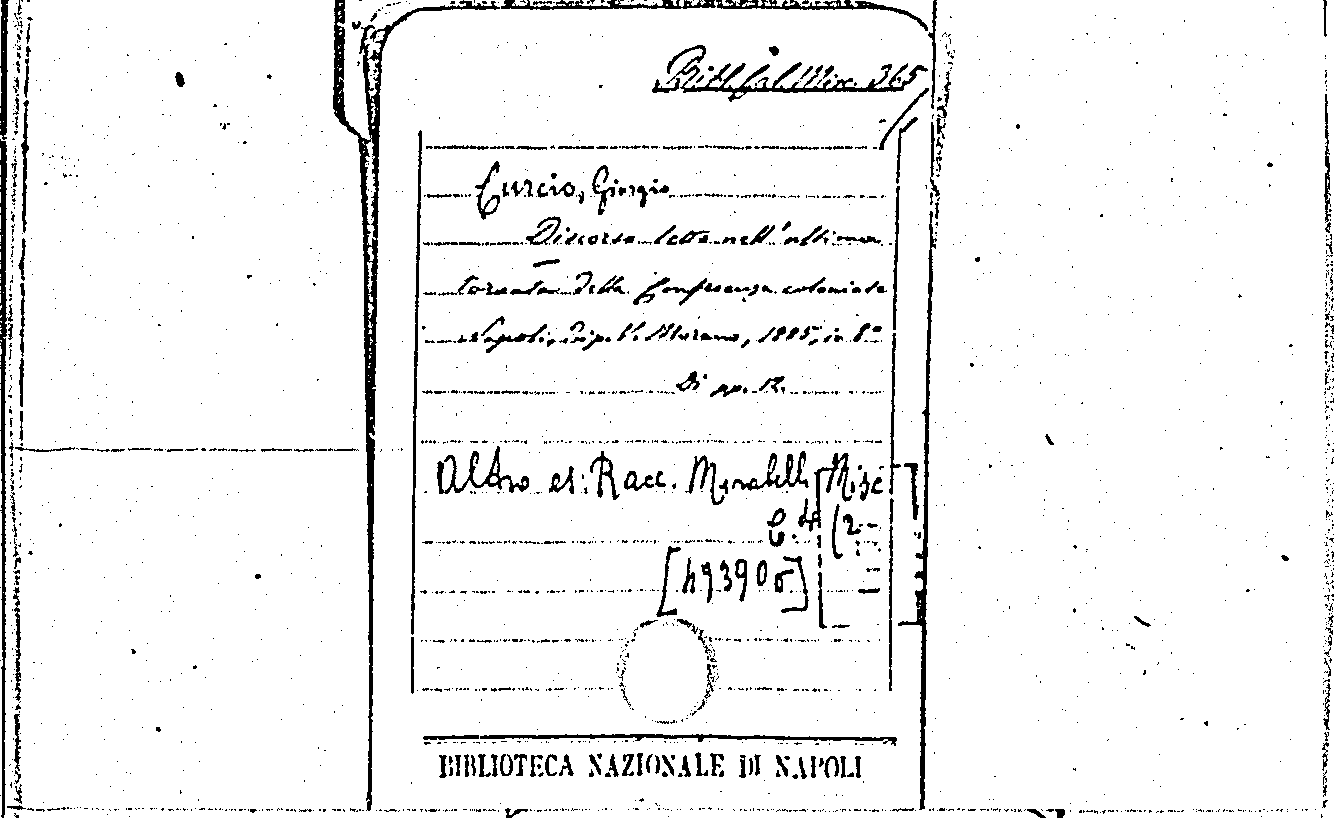 Bibl. Gal. Misc. 365
Curcio, Giorgio
Discorso letto nell'ultima
tornata della Conferenza coloniale
Napoli, Tip. V. Morano, 1885, in 8°
Di pp. 12.
Altro es: Racc. Mirabelli Misc
C. (2
[h9390
BIBLIOTECA NAZIONALE DI NAPOLI